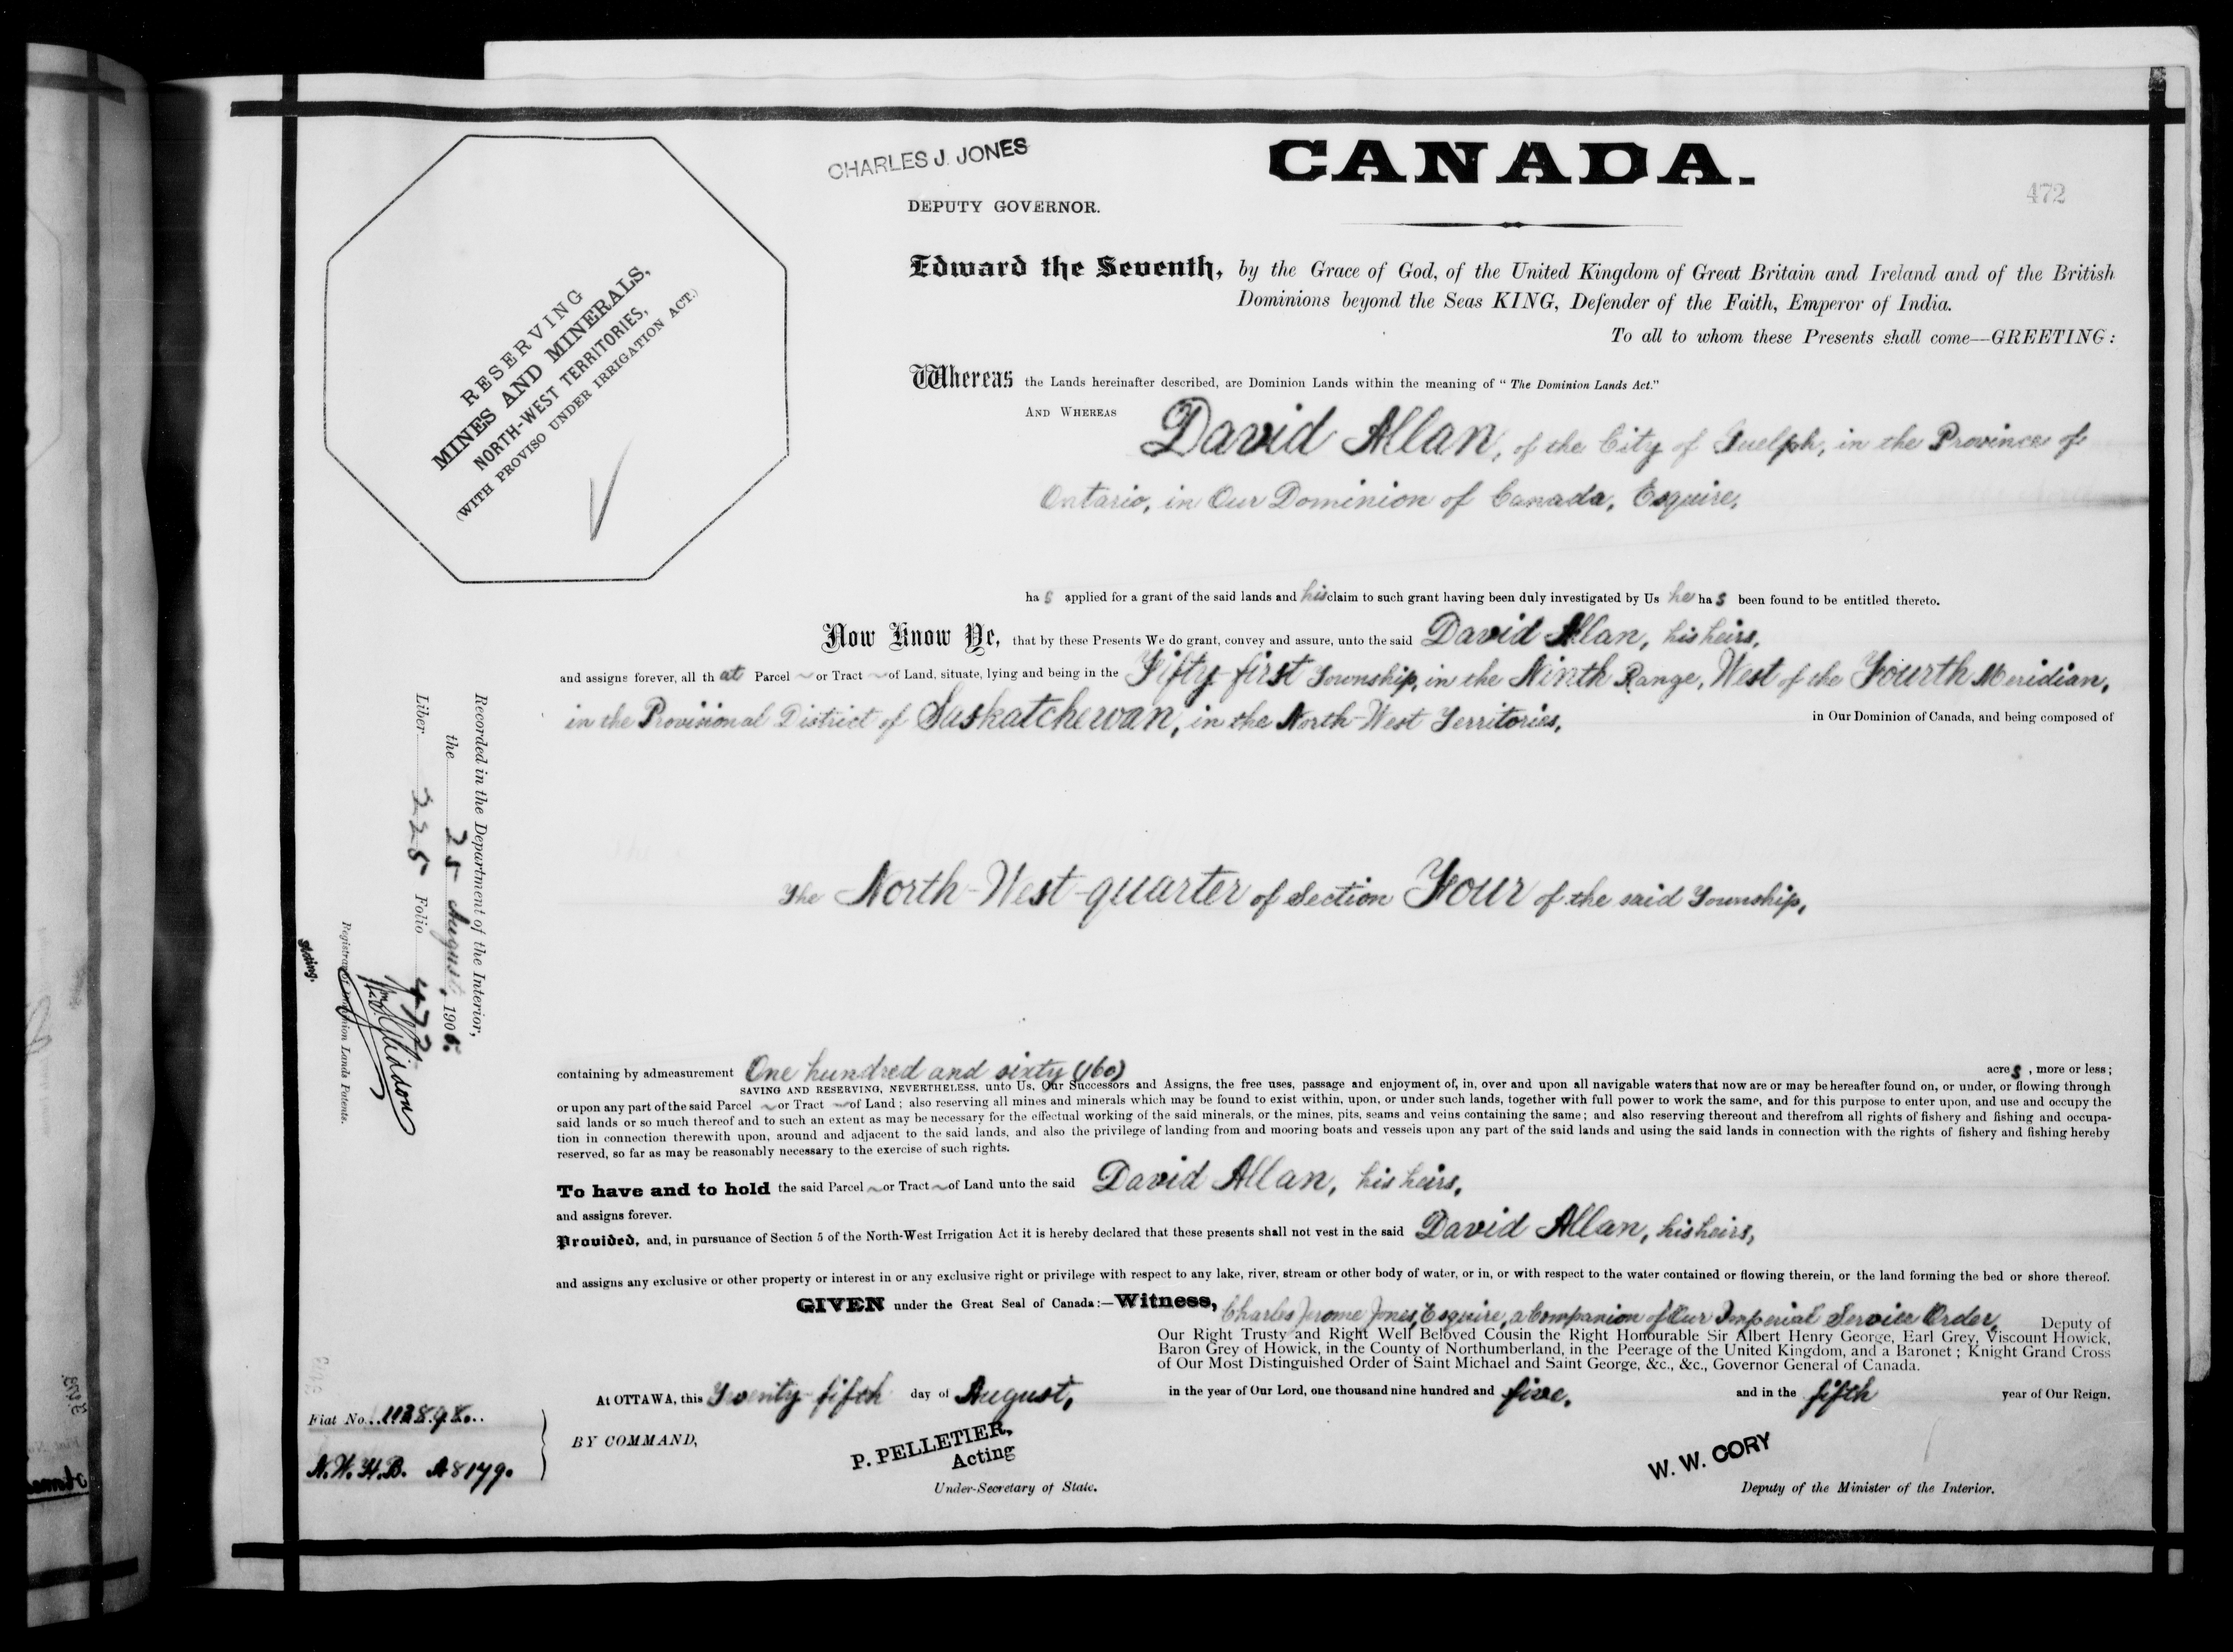 CHARLES J. JONES
DEPUTY GOVERNOR.
CANADA.
472
RESERVING
MINES AND MINERALS,
NORTH-WEST TERRITORIES,
(WITH PROVISO UNDER IRRIGATION ACT.)
Edward the Seventh, by the Grace of God, of the United Kingdom of Great Britain and Ireland and of the British
Dominions beyond the Seas KING, Defender of the Faith, Emperor of India.
To all to whom these Presents shall come—GREETING:
Whereas the Lands hereinafter described, are Dominion Lands within the meaning of "The Dominion Lands Act."
AND WHEREAS David Allan, of the City of Guelph, in the Province of
Ontario, in Our Dominion of Canada, Esquire,
has applied for a grant of the said lands and his claim to such grant having been duly investigated by Us he has been found to be entitled thereto.
Now Know Ye, that by these Presents We do grant, convey and assure, unto the said David Allan, his heirs,
and assigns forever, all that Parcel ~ or Tract ~ of Land, situate, lying and being in the Fifty-first Township, in the Ninth Range, West of the Fourth Meridian,
in the Provisional District of Saskatchewan, in the North-West Territories, in Our Dominion of Canada, and being composed of
The North-West-quarter of Section Four of the said Township,
containing by admeasurement One hundred and sixty (160) acres, more or less;
SAVING AND RESERVING, NEVERTHELESS, unto Us, Our Successors and Assigns, the free uses, passage and enjoyment of, in, over and upon all navigable waters that now are or may be hereafter found on, or under, or flowing through
or upon any part of the said Parcel ~ or Tract ~ of Land; also reserving all mines and minerals which may be found to exist within, upon, or under such lands, together with full power to work the same, and for this purpose to enter upon, and use and occupy the
said lands or so much thereof and to such an extent as may be necessary for the effectual working of the said minerals, or the mines, pits, seams and veins containing the same; and also reserving thereout and therefrom all rights of fishery and fishing and occupa-
tion in connection therewith upon, around and adjacent to the said lands, and also the privilege of landing from and mooring boats and vessels upon any part of the said lands and using the said lands in connection with the rights of fishery and fishing hereby
reserved, so far as may be reasonably necessary to the exercise of such rights.
To have and to hold the said Parcel ~ or Tract ~ of Land unto the said David Allan, his heirs,
and assigns forever.
Provided, and, in pursuance of Section 5 of the North-West Irrigation Act it is hereby declared that these presents shall not vest in the said David Allan, his heirs,
and assigns any exclusive or other property or interest in or any exclusive right or privilege with respect to any lake, river, stream or other body of water, or in, or with respect to the water contained or flowing therein, or the land forming the bed or shore thereof.
GIVEN under the Great Seal of Canada:—Witness, Charles Jerome Jones, Esquire, a Companion of Our Imperial Service Order, Deputy of
Our Right Trusty and Right Well Beloved Cousin the Right Honourable Sir Albert Henry George, Earl Grey, Viscount Howick,
Baron Grey of Howick, in the County of Northumberland, in the Peerage of the United Kingdom, and a Baronet; Knight Grand Cross
of Our Most Distinguished Order of Saint Michael and Saint George, &c., &c., Governor General of Canada.
At OTTAWA, this Twenty-fifth day of August, in the year of Our Lord, one thousand nine hundred and five, and in the fifth year of Our Reign.
BY COMMAND,
P. PELLETIER,
Acting
Under-Secretary of State.
W. W. CORY
Deputy of the Minister of the Interior.
Recorded in the Department of the Interior,
the 25 August, 1905.
Liber 225 Folio 472
Registrar of Dominion Lands Patents.
Acting.
Fiat No. 112898.
N.W.H.B. A8179.